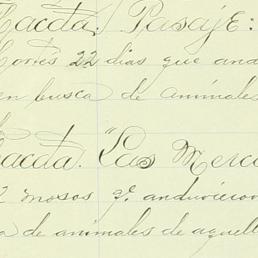 Hacda. Pasaje:
Cortés 22 dias que and
en busca de animales
Hacda. "Las Merce
2 mosos q. anduvieron
a de animales de aquell